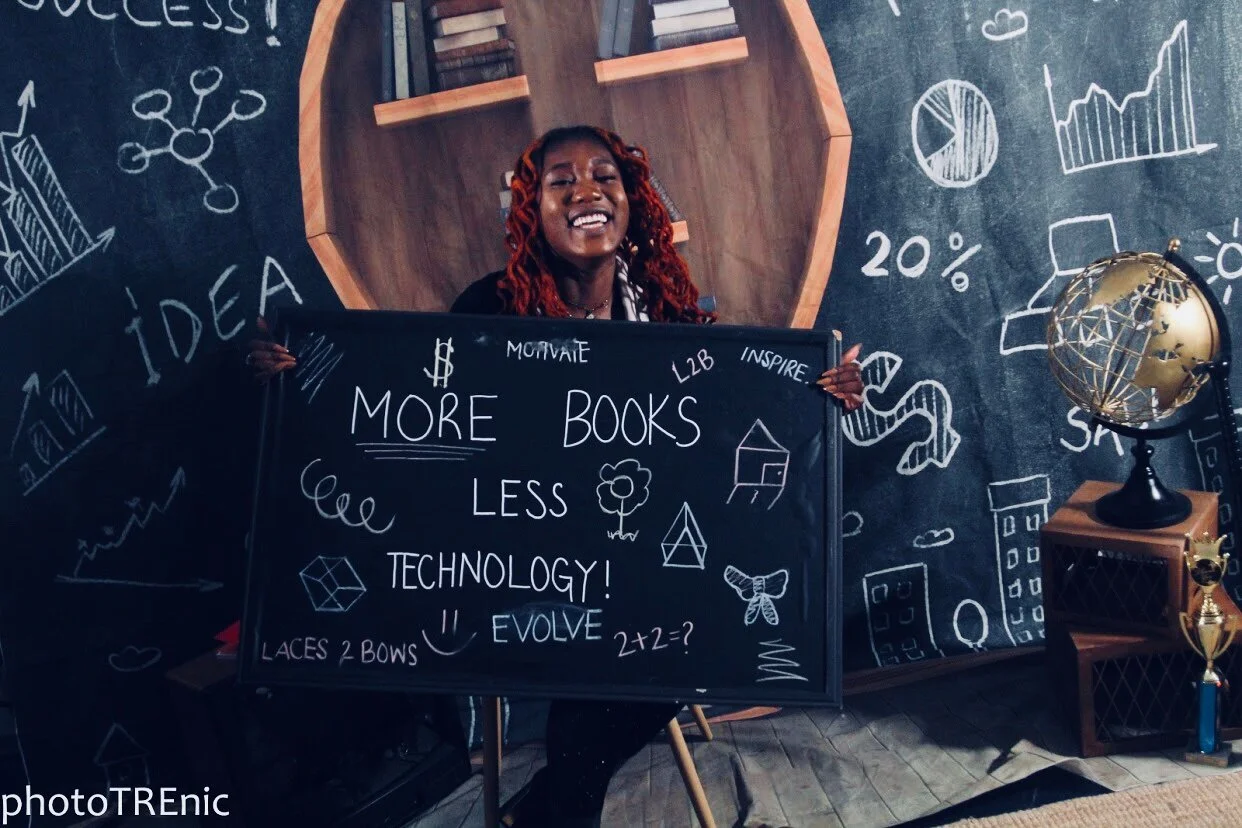 SUCCESS!
IDEA
20%
$
MOTIVATE
L2B
INSPIRE
MORE BOOKS
LESS
TECHNOLOGY!
EVOLVE
2+2=?
LACES 2 BOWS
photoTREnic